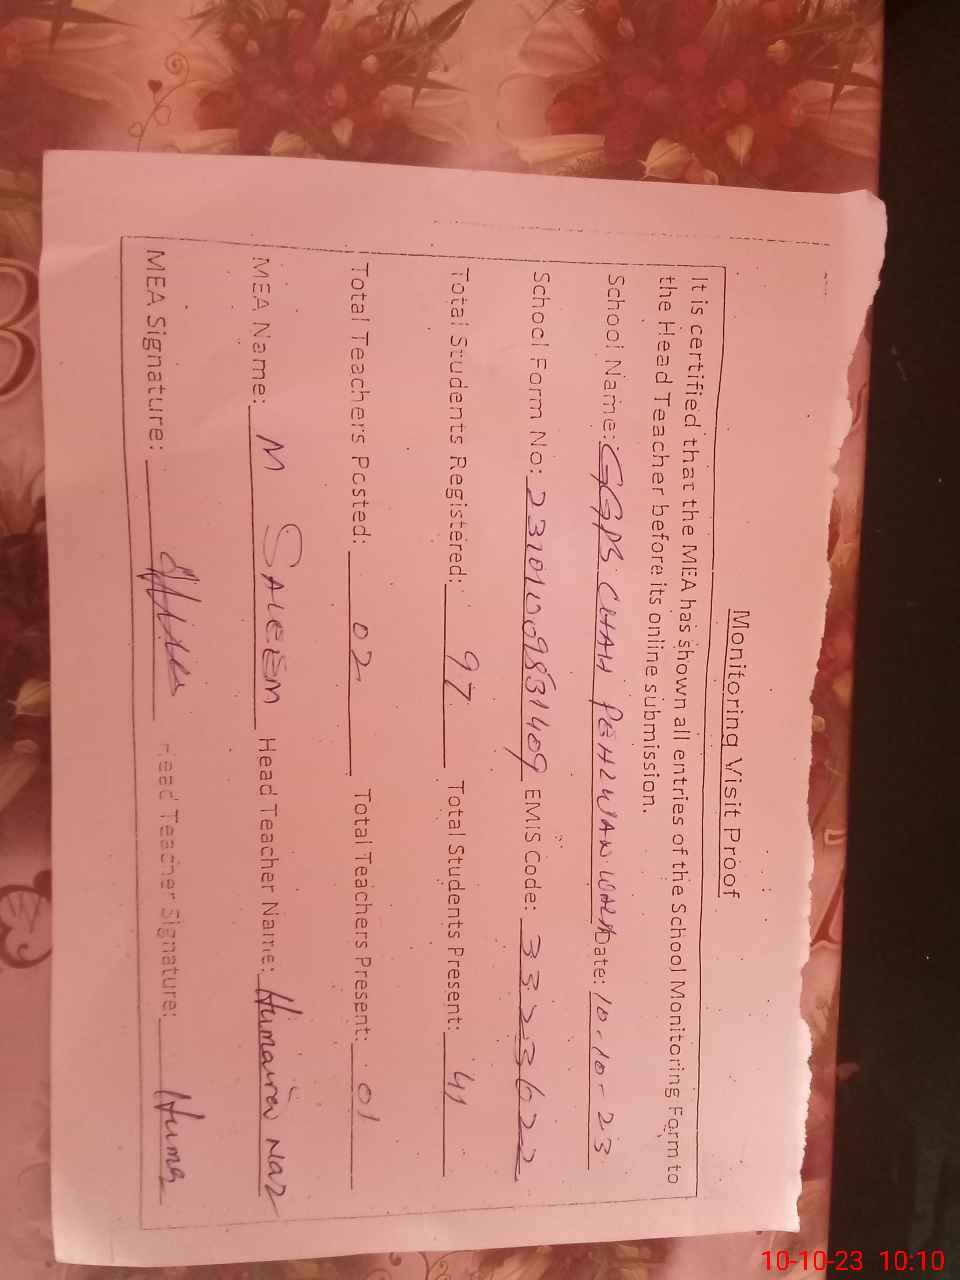 Monitoring Visit Proof
It is certified that the MEA has shown all entries of the School Monitoring Form to
the Head Teacher before its online submission.
School Name: GGPS CHAH PEHLWAN WALA Date: 10-10-23
School Form No: 23101009831409 EMIS Code: 33223622
Total Students Registered: 97 Total Students Present: 41
Total Teachers Posted: 02 Total Teachers Present: 01
MEA Name: M SALEEM Head Teacher Name: Humaira Naz
MEA Signature: Head Teacher Signature: Huma
10-10-23 10:10